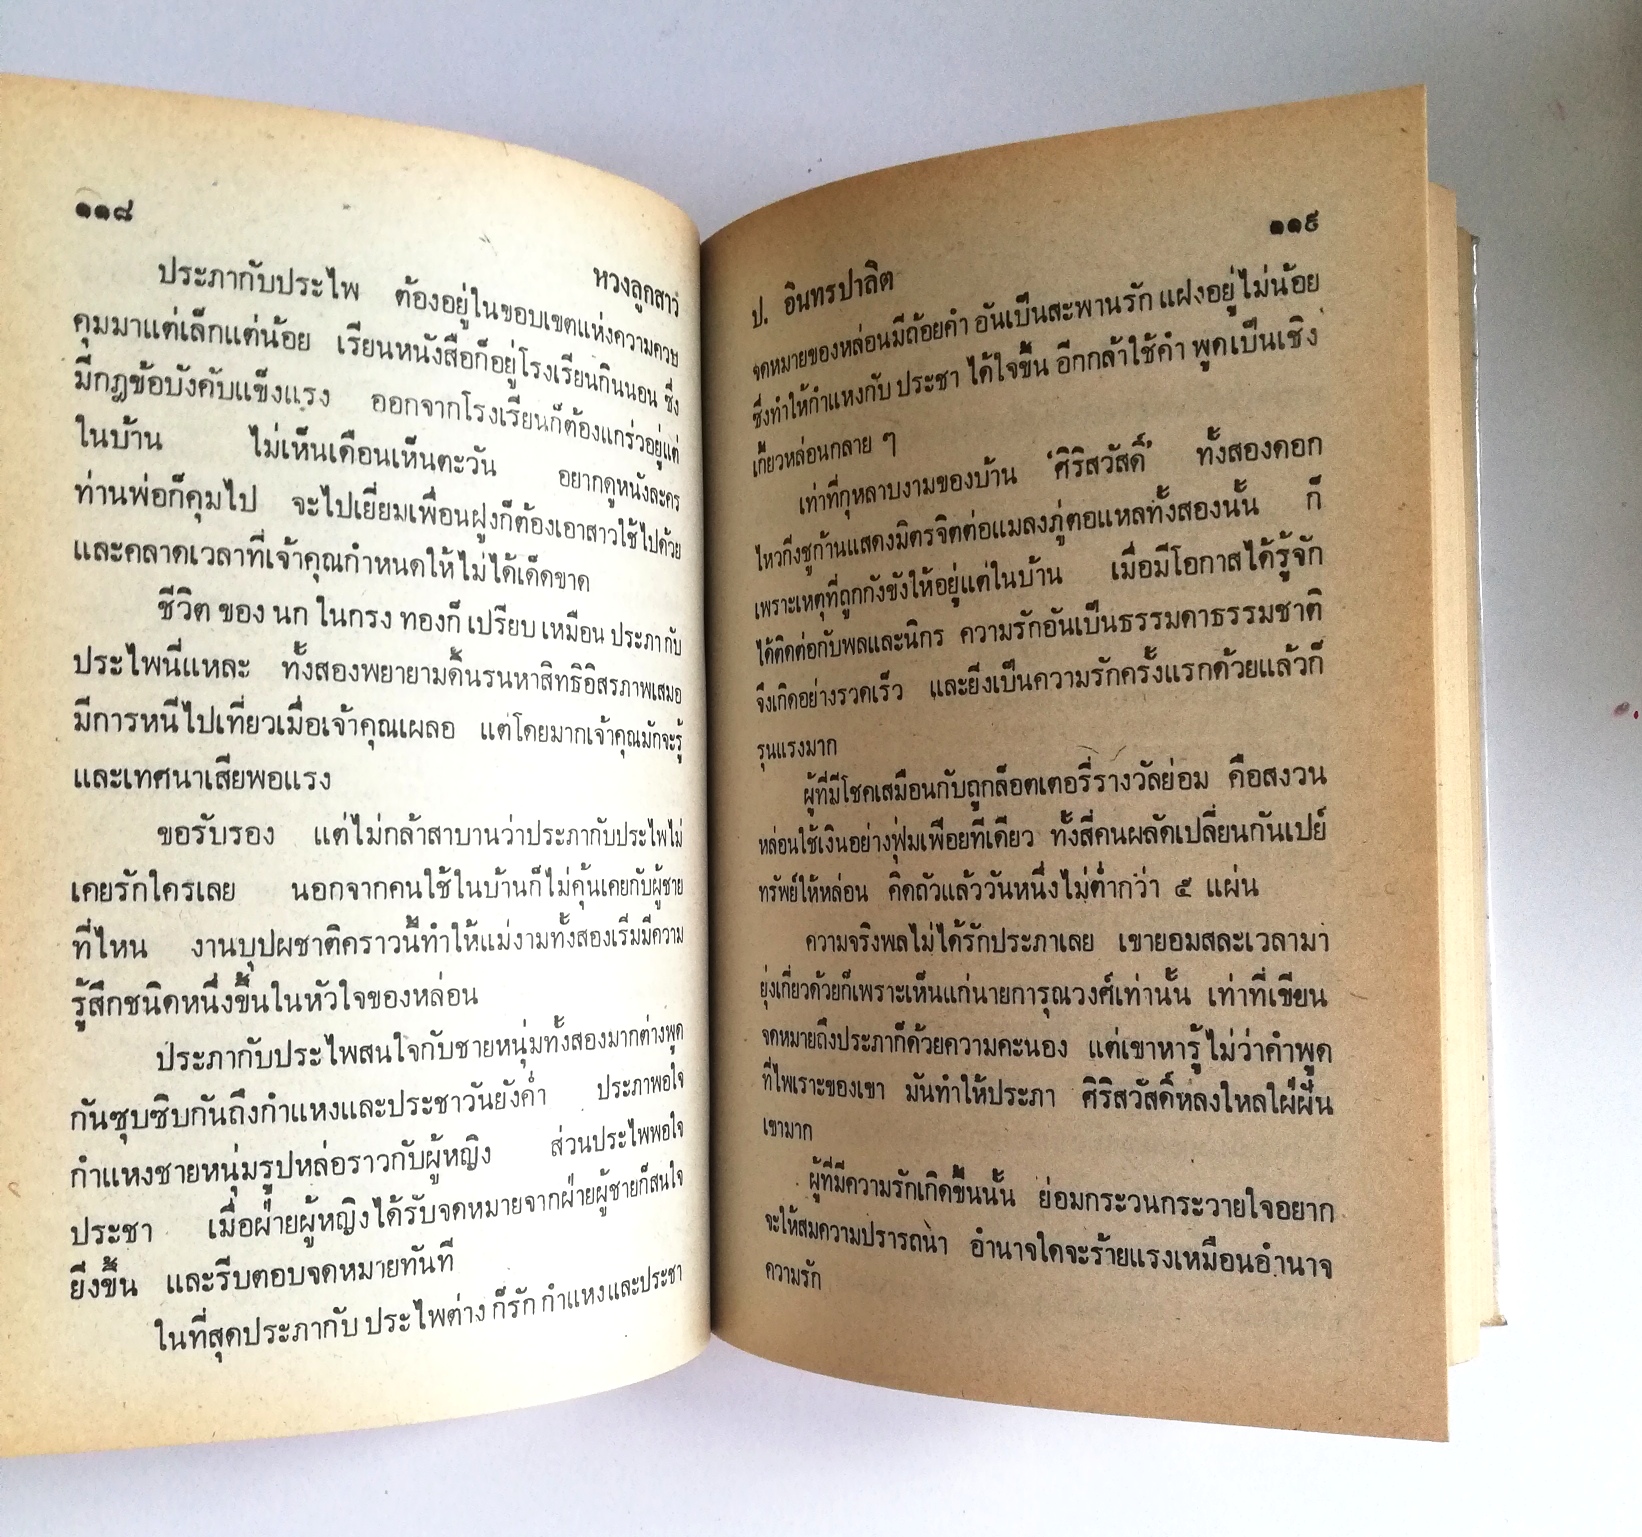 ๑๑๘
หวงลูกสาว
ประภากับประไพ ต้องอยู่ในขอบเขตแห่งความควบ
คุมมาแต่เล็กแต่น้อย เรียนหนังสือก็อยู่โรงเรียนกินนอน ซึ่ง
มีกฎข้อบังคับแข็งแรง ออกจากโรงเรียนก็ต้องแกร่วอยู่แต่
ในบ้าน ไม่เห็นเดือนเห็นตะวัน อยากดูหนังละคร
ท่านพ่อก็คุมไป จะไปเยี่ยมเพื่อนฝูงก็ต้องเอาสาวใช้ไปด้วย
และคลาดเวลาที่เจ้าคุณกำหนดให้ไม่ได้เด็ดขาด
ชีวิต ของ นก ในกรง ทองก็ เปรียบ เหมือน ประภา กับ
ประไพนี่แหละ ทั้งสองพยายามดิ้นรนหาสิทธิอิสรภาพเสมอ
มีการหนีไปเที่ยวเมื่อเจ้าคุณเผลอ แต่โดยมากเจ้าคุณมักจะรู้
และเทศนาเสียพอแรง
ขอรับรอง แต่ไม่กล้าสาบานว่าประภากับประไพไม่
เคยรักใครเลย นอกจากคนใช้ในบ้านก็ไม่คุ้นเคยกับผู้ชาย
ที่ไหน งานบุปผชาติคราวนี้ทำให้แม่งามทั้งสองเริ่มมีความ
รู้สึกชนิดหนึ่งขึ้นในหัวใจของหล่อน
ประภากับประไพสนใจกับชายหนุ่มทั้งสองมากต่างพูด
กันซุบซิบกันถึงกำแหงและประชาวันยังค่ำ ประภาพอใจ
กำแหงชายหนุ่มรูปหล่อราวกับผู้หญิง ส่วนประไพพอใจ
ประชา เมื่อฝ่ายผู้หญิงได้รับจดหมายจากฝ่ายผู้ชายก็สนใจ
ยิ่งขึ้น และรีบตอบจดหมายทันที
ในที่สุดประภากับ ประไพต่าง ก็รัก กำแหง และประชา
๑๑๙
ป. อินทรปาลิต
จดหมายของหล่อนมีถ้อยคำ อันเป็นสะพานรัก แฝงอยู่ไม่น้อย
ซึ่งทำให้กำแหงกับ ประชา ได้ใจขึ้น อีกกล้าใช้คำ พูดเป็นเชิง
เกี้ยวหล่อนกลาย ๆ
เท่าที่กุหลาบงามของบ้าน 'ศิริสวัสดิ์' ทั้งสองดอก
ไหวกิ่งชูก้านแสดงมิตรจิตต่อแมลงภู่ตอแหลทั้งสองนั้น ก็
เพราะเหตุที่ถูกกังขังให้อยู่แต่ในบ้าน เมื่อมีโอกาสได้รู้จัก
ได้ติดต่อกับพลและนิกร ความรักอันเป็นธรรมดาธรรมชาติ
จึงเกิดอย่างรวดเร็ว และยิ่งเป็นความรักครั้งแรกด้วยแล้วก็
รุนแรงมาก
ผู้ที่มีโชคเสมือนกับถูกล็อตเตอรี่รางวัลย่อม คือสงวน
หล่อนใช้เงินอย่างฟุ่มเฟือยทีเดียว ทั้งสี่คนผลัดเปลี่ยนกันเปย์
ทรัพย์ให้หล่อน คิดถัวแล้ววันหนึ่งไม่ต่ำกว่า ๕ แผ่น
ความจริงพลไม่ได้รักประภาเลย เขายอมสละเวลามา
ยุ่งเกี่ยวด้วยก็เพราะเห็นแก่นายการุณวงศ์เท่านั้น เท่าที่เขียน
จดหมายถึงประภาก็ด้วยความคะนอง แต่เขาหารู้ไม่ว่าคำพูด
ที่ไพเราะของเขา มันทำให้ประภา ศิริสวัสดิ์หลงใหลใฝ่ฝัน
เขามาก
ผู้ที่มีความรักเกิดขึ้นนั้น ย่อมกระวนกระวายใจอยาก
จะให้สมความปรารถนา อำนาจใดจะร้ายแรงเหมือนอำนาจ
ความรัก